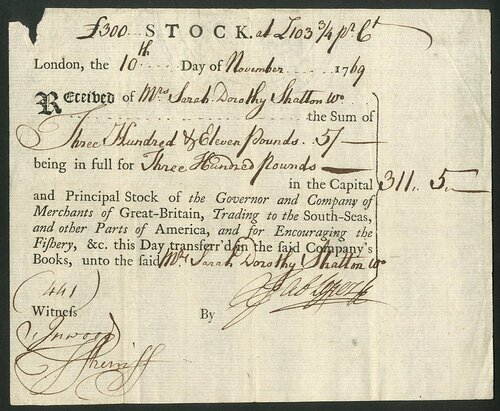 £300 STOCK. at £103 3/4 pr Ct
London, the 10th Day of November 1769
Received of Mrs Sarah Dorothy Shatton Wo
the Sum of
Three Hundred & Eleven Pounds. 5/—
being in full for Three Hundred Pounds
in the Capital 311. 5. —
and Principal Stock of the Governor and Company of
Merchants of Great-Britain, Trading to the South-Seas,
and other Parts of America, and for Encouraging the
Fishery, &c. this Day transferr'd in the said Company's
Books, unto the said Mrs Sarah Dorothy Shatton Wo
(441)
Witness By
Inwood
Sherriff